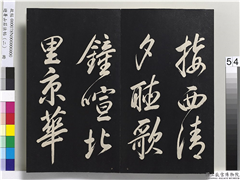 接西清
夕聽歌
鐘喧北
里京華
54